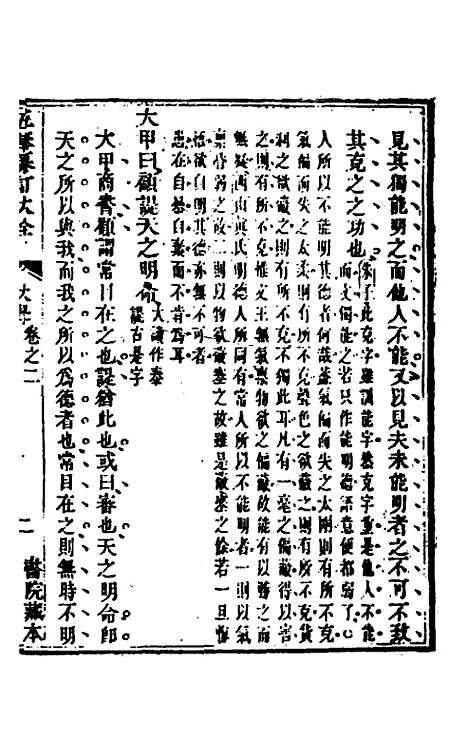 見其獨能明之而他人不能又以見夫未能明者之不可不致
其克之之功也朱子曰此克字雖訓能字然克字重是他人不能
而文獨能之若只作能明德語意便都弱了
人所以不能明其德者何哉蓋氣偏而失之太剛則有所不克
氣偏而失之太柔則有所不克聲色之欲蔽之則有所不克貨
利之欲蔽之則有所不克不獨此耳凡有一毫之偏蔽得以害
之則有所不克惟文王無氣稟物欲之偏蔽故能有以勝之而
無難西山真氏明德人所同有常人所以不能明者一則以氣
稟昏弱之故二則以物欲蔽塞之故雖是蔽塞之餘若一旦悔
悟欲自明其德亦無不可者
患在自暴自棄而不肯為耳
大甲曰顧諟天之明命大讀作泰
諟古是字
大甲商書顧謂常目在之也諟猶此也或曰審也天之明命即
天之所以與我而我之所以為德者也常目在之則無時不明
大全
大學 卷之二
二
書院藏本